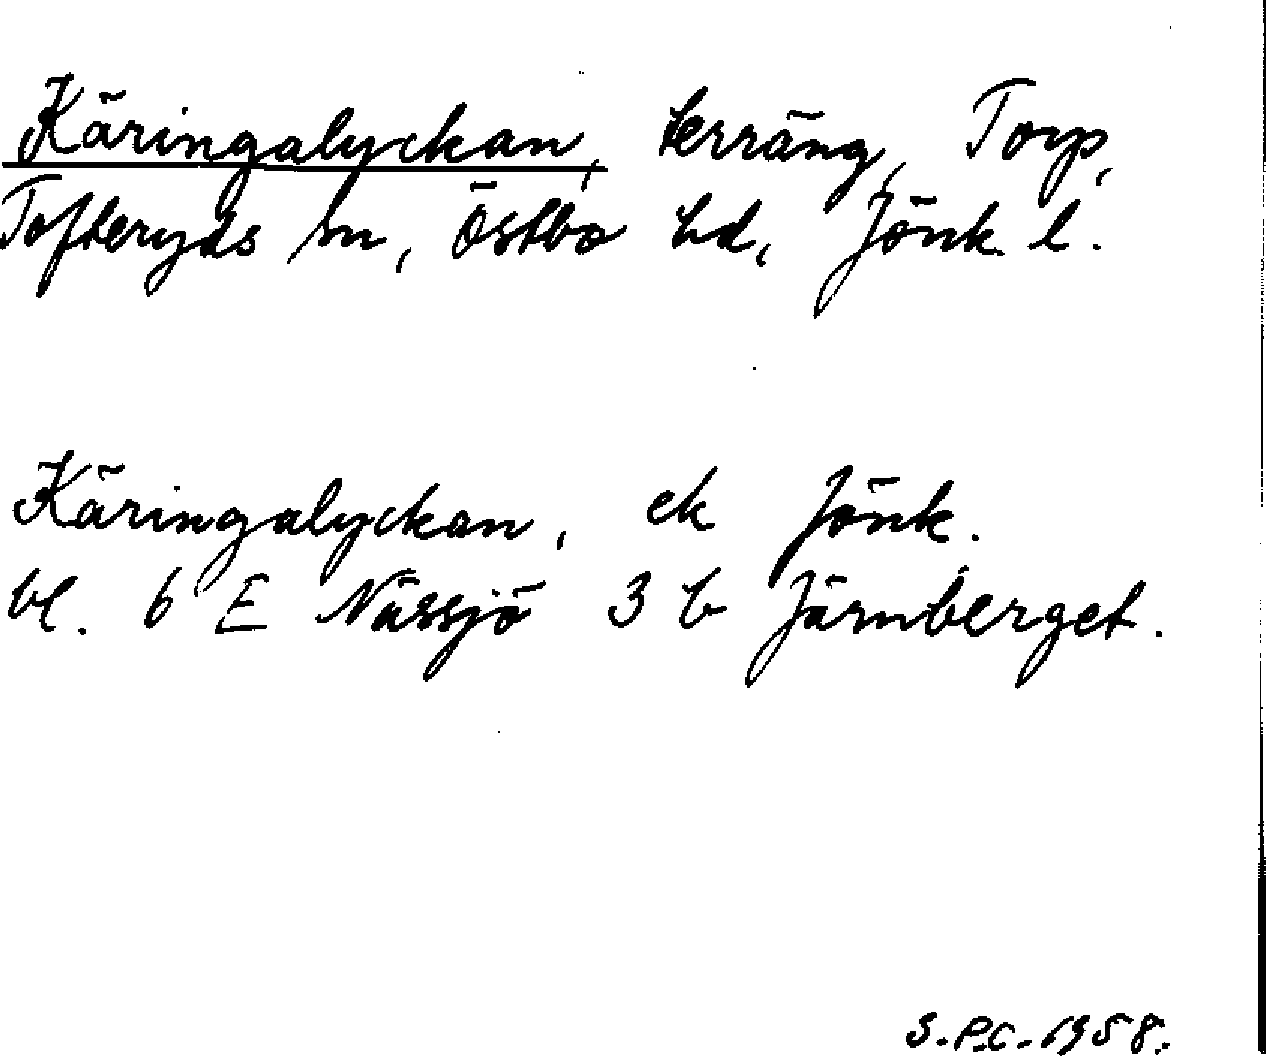 Käringalyckan, terräng, Torp,
Tofteryds sn, Östbo hd, Jönk. l.
Käringalyckan, ek Jönk.
bl. 6 E Nässjö 3 b Järnberget.
S.P.C. 1958.